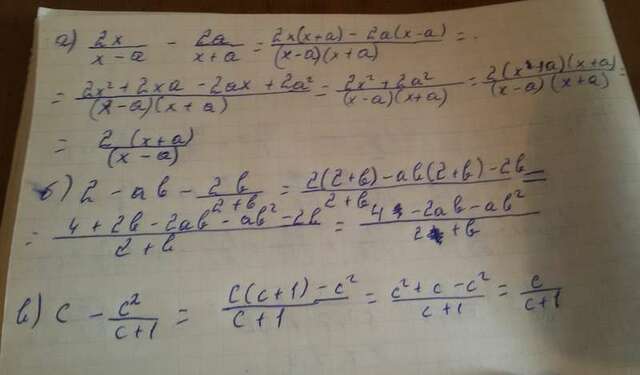 а) 2x/(x-a) - 2a/(x+a) = (2x(x+a) - 2a(x-a))/((x-a)(x+a)) =
= (2x² + 2xa - 2ax + 2a²)/((x-a)(x+a)) = (2x² + 2a²)/((x-a)(x+a)) = (2(x²+a)(x+a))/((x-a)(x+a)) =
= 2(x+a)/(x-a)
б) 2 - ab - 2b/(2+b) = (2(2+b) - ab(2+b) - 2b)/(2+b) =
= (4 + 2b - 2ab - ab² - 2b)/(2+b) = (4 - 2ab - ab²)/(2+b)
в) c - c²/(c+1) = (c(c+1) - c²)/(c+1) = (c² + c - c²)/(c+1) = c/(c+1)